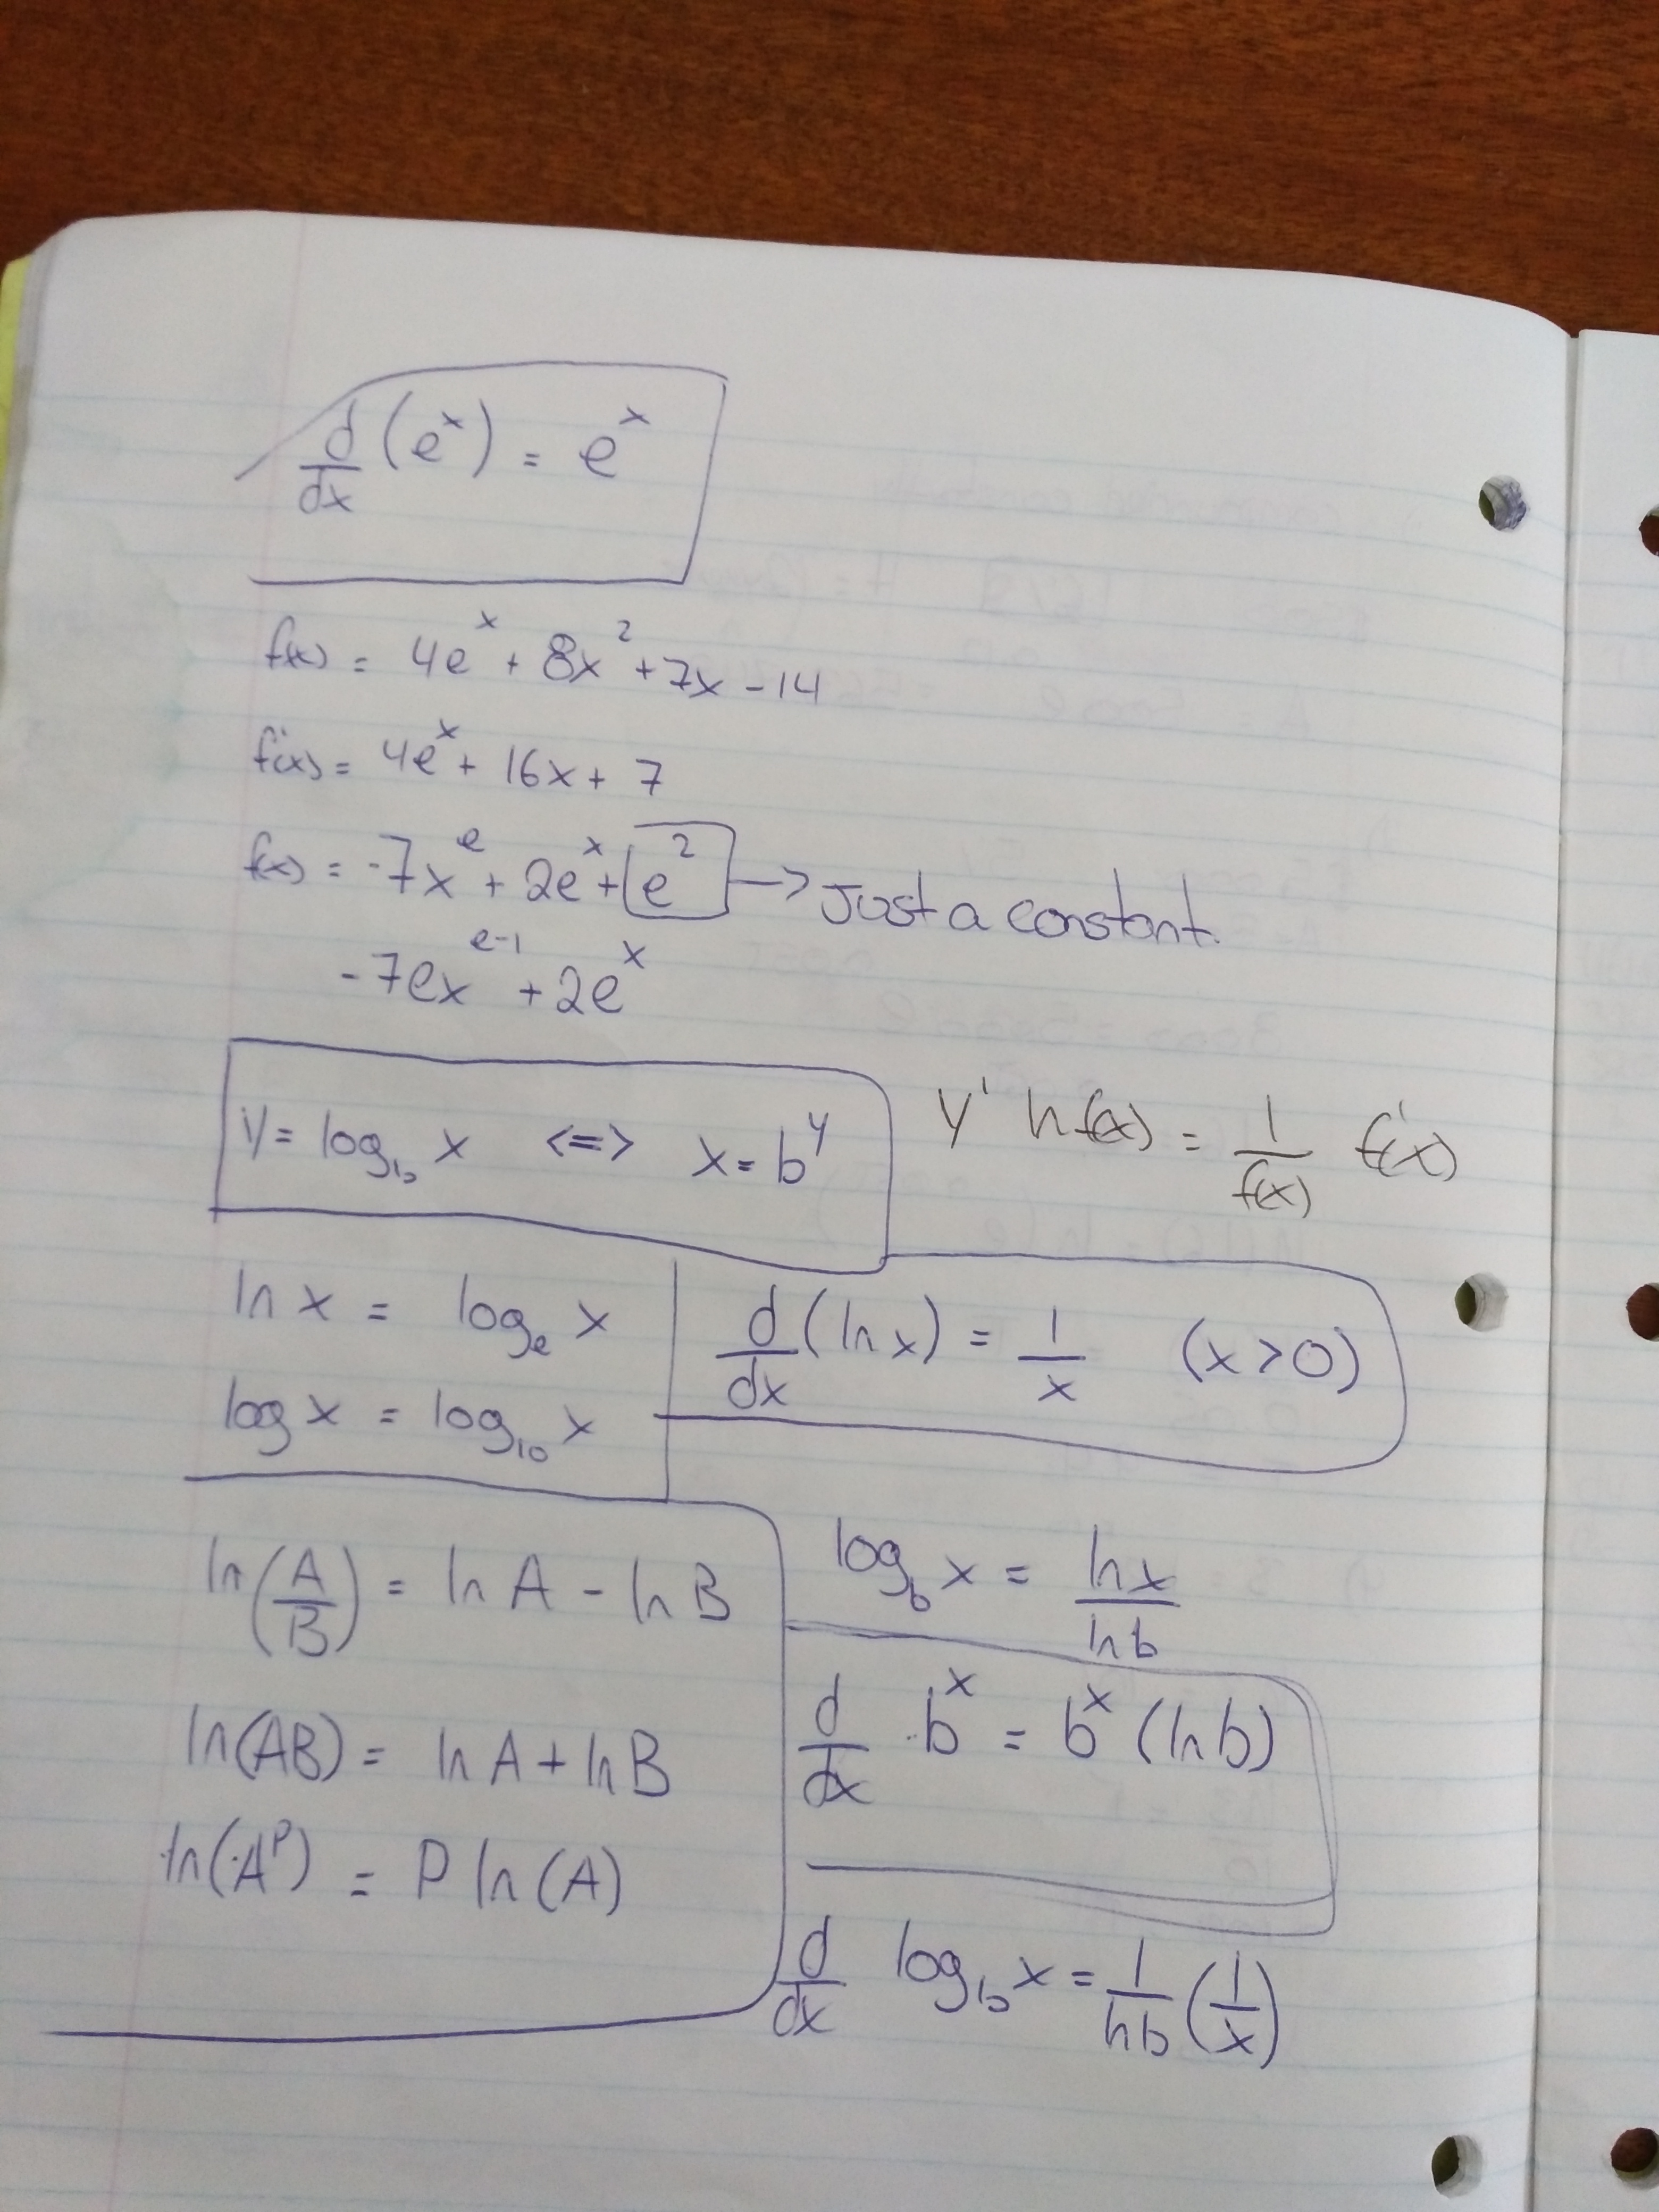 d/dx (e^x) = e^x
f(x) = 4e^x + 8x^2 + 7x - 14
f'(x) = 4e^x + 16x + 7
f(x) = -7x^e + 2e^x + e^2 → Just a constant.
-7ex^(e-1) + 2e^x
y = log_b x <=> x = b^y
y' ln f(x) = 1/f(x) f'(x)
ln x = log_e x
d/dx (ln x) = 1/x (x > 0)
log x = log_10 x
ln(A/B) = ln A - ln B
ln(AB) = ln A + ln B
ln(A^P) = P ln(A)
log_b x = ln x / ln b
d/dx b^x = b^x (ln b)
d/dx log_b x = 1/ln b (1/x)